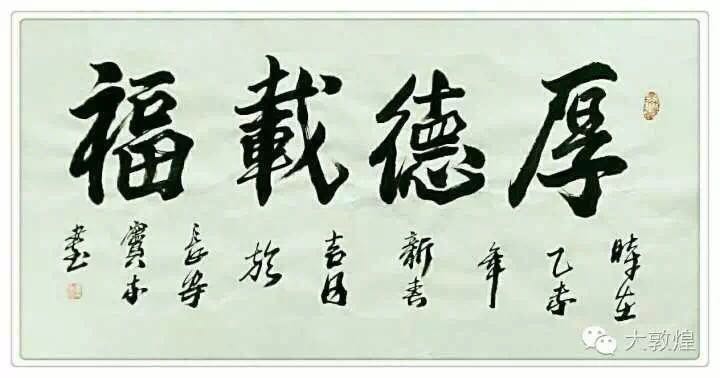 厚德載福
時在
乙未
年
新春
吉日
於
長安
寶
書
大敦煌